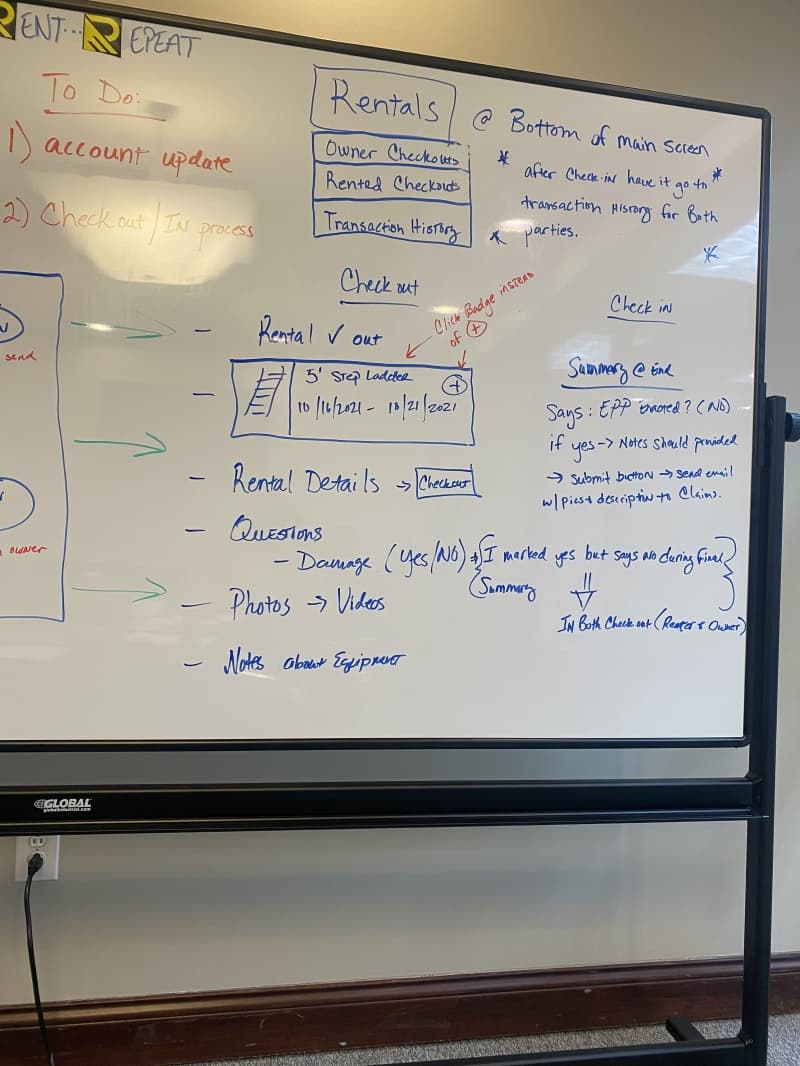 RENT... REPEAT
To Do:
1) account update
2) Check out / IN process
Rentals
Owner Checkouts
Rented Checkouts
Transaction History
@ Bottom of main screen
* after Check-in have it go to *
transaction History for Both
* parties.
*
Check out
- Rental ✓ out
Click Badge instead
of +
- 5' Step Ladder
+
10/16/2021 - 10/21/2021
- Rental Details → Checkout
- Questions
- Damage (Yes/NO) → { I marked yes but says no during final
Summary }
⇓
IN Both Check out (Renter & Owner)
- Photos → Videos
- Notes about Equipment
Check in
Summary @ End
Says: EPP (NO)
if yes → Notes should provided
→ submit button → send email
w/ pics & description to Claims.
send
owner
GLOBAL